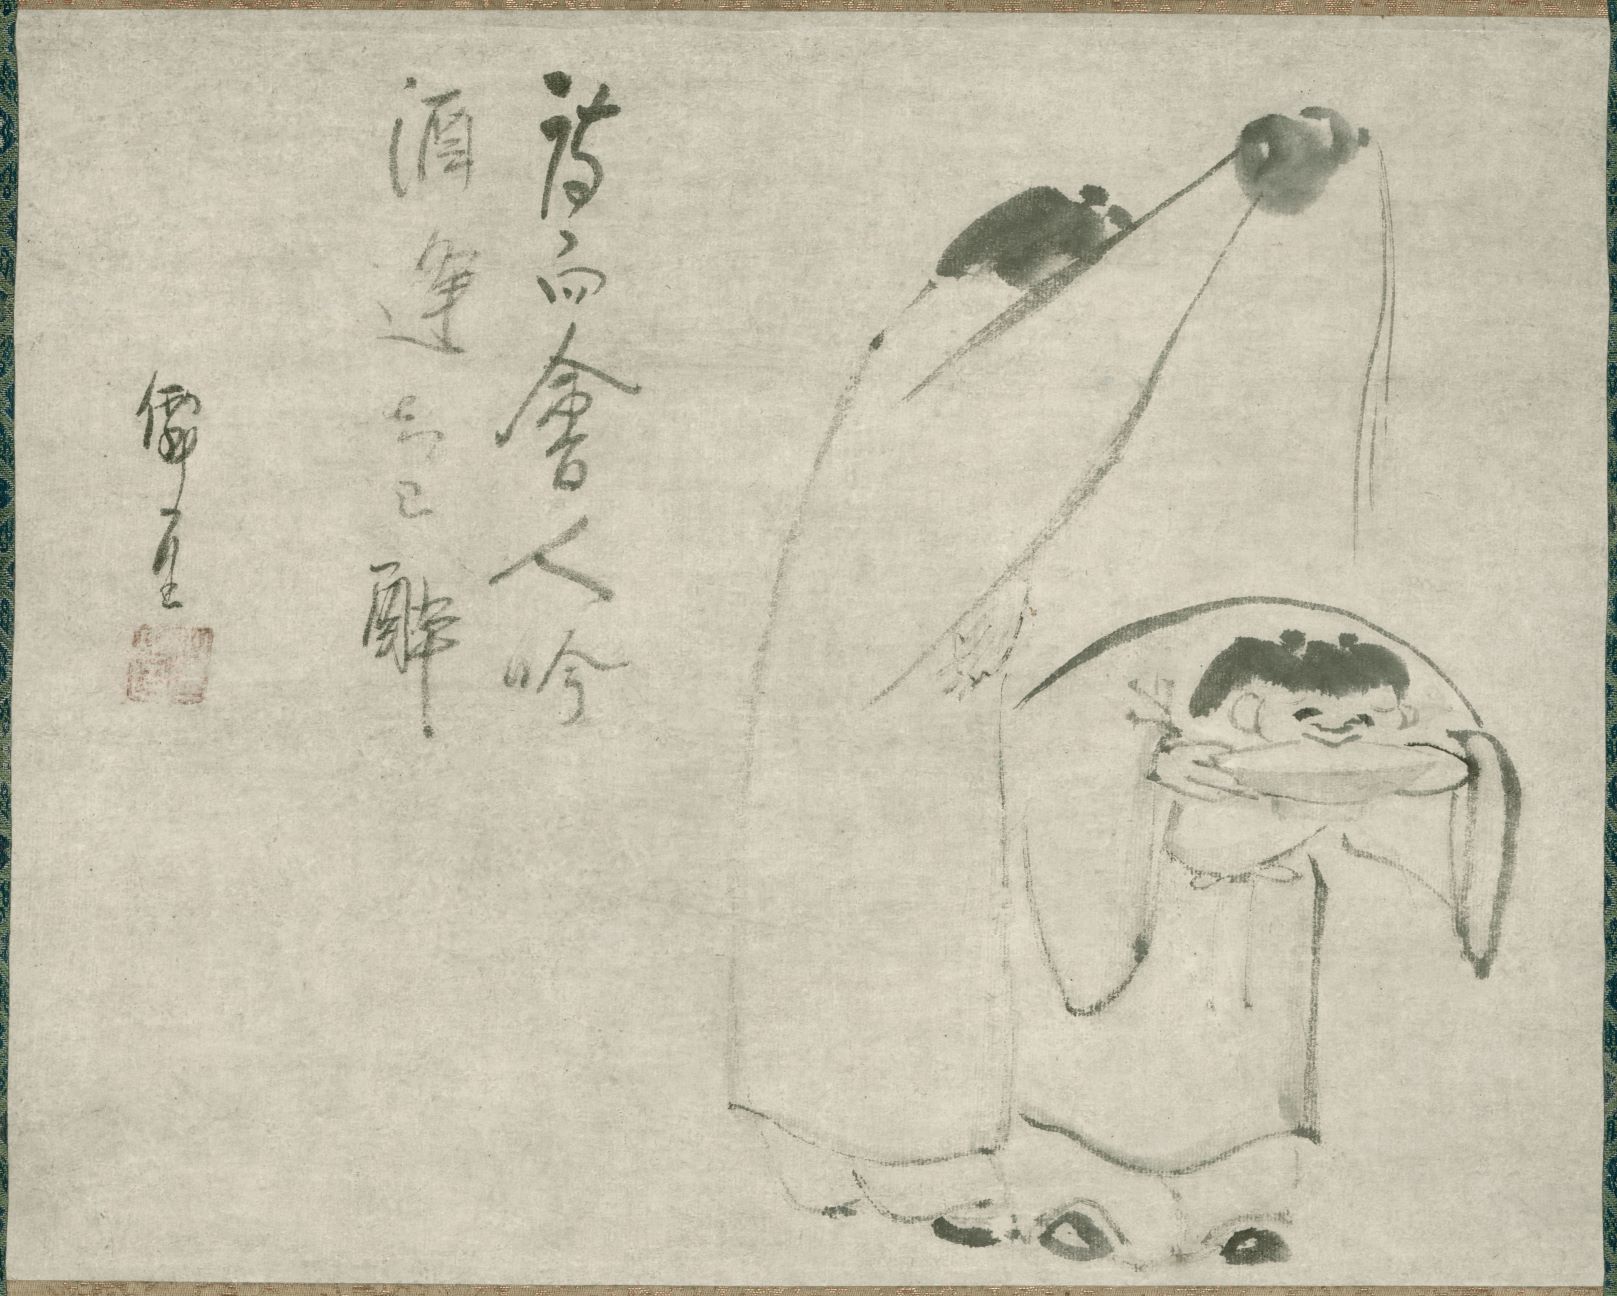 詩向會人吟
酒逢知己醉